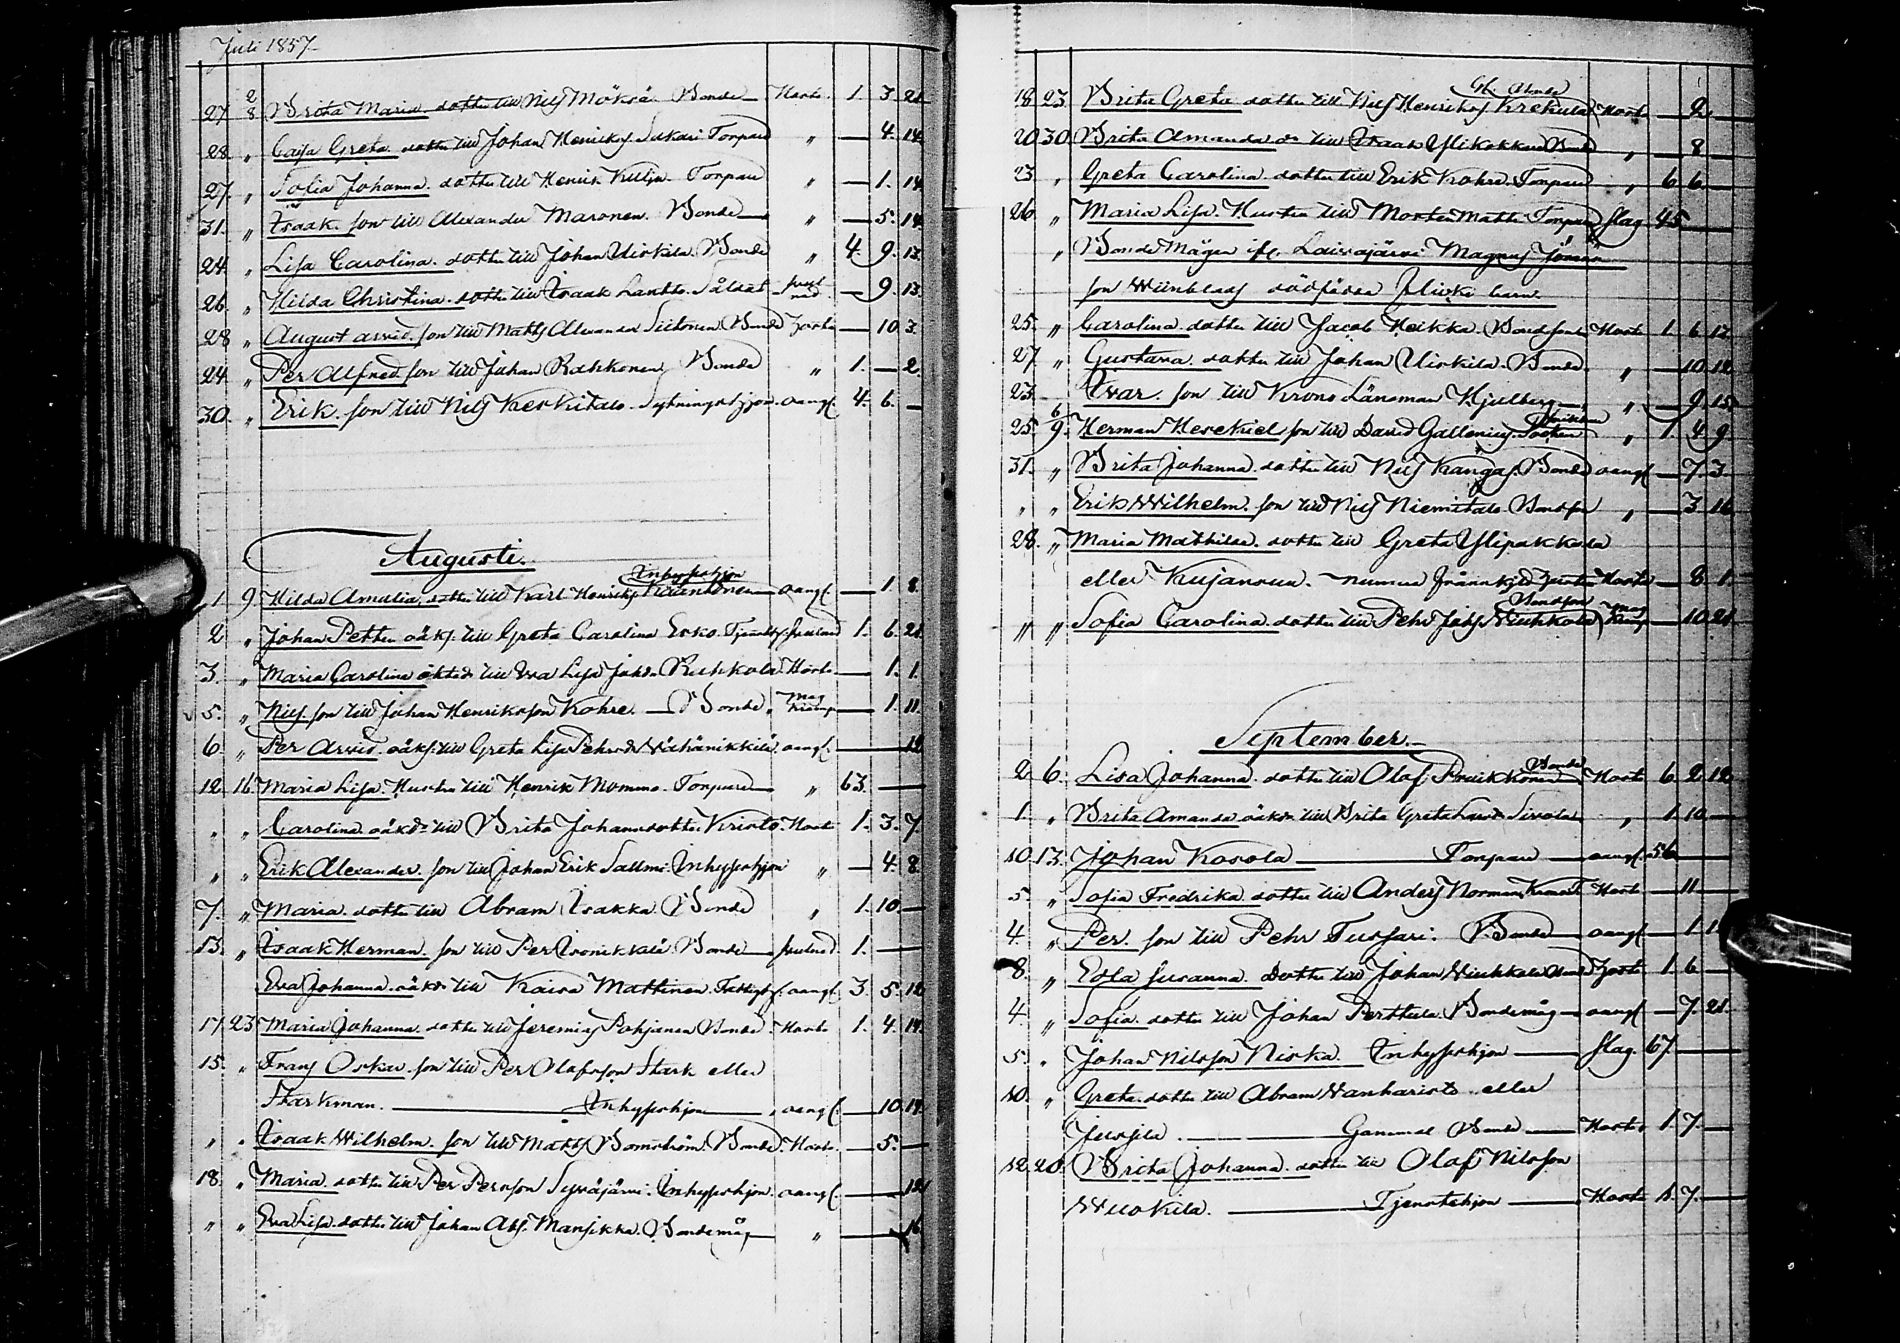 Juli 1857
27. 2/8 Brita Maria dotter till Nils Möksä Bonde Host. 1. 3. 21
28 " Caisa Greta dotter till Johan Henriks Sakari Torpare " — 4. 14
27. " Sofia Johanna dotter till Henrik Kulja Torpare " — 1. 14
31. " Isaak son till Alexander Maronen Bonde " — 5. 14
24. " Lisa Carolina dotter till Johan Uirkila Bonde " 4. 9. 13
26. " Hilda Christina dotter till Isaak Lantto Såldat — 9. 13
28 " August Arvid son till Matts Alexander Siitonen Bonde — 10 3.
24. " Per Alfred son till Johan Rahkonen Bonde " 1. — 2.
30. " Erik son till Nils Kerkitalo Sytningshjon oangf. 4. 6. —
Augusti.
Inhysehjon
1. 9. Hilda Amalia dotter till Karl Henriks oangf. — 1. 8.
2 " Johan Petter oäkt. till Greta Carolina Erko 1. 6. 21
3. " Maria Carolina till Eva Lisa Johd. Ruhkala Host. — 1. 1.
5. " Nils son till Johan Henriksson Kohre. — Bonde — 1. 11.
6. " Per Arvid oäkt till Greta Lisa Pehrsdr Wähänikkilä oangf. — 12
12 16. Maria Lisa Hustru till Henrik Mommo Torpare " 63. —
" " Carolina oäkdr till Brita Johansdotter Kristo Host 1. 3. 7.
" " Erik Alexander son till Johan Erik Sallmi Inhysehjon " — 4. 8.
7. " Maria dotter till Abram Isakka Bonde " 1. 10 —
13. " Isaak Herman son till Per Bonde 1. —
Eva Johanna oäkdr till Kaisa Mattinen oangf. 3. 5. 12
17. 23 Maria Johanna dotter till Jeremias Pohjanen Bonde Host 1. 4. 14.
15. " Frans Oskar son till Per Olofsson Stark eller
Starkman. — Inhysehjon — oangf. — 10 14.
" " Isaak Wilhelm son till Matts Bomström Bonde Host — 5. —
18. " Maria dotter till Per Persson Syväjärvi Inhysehjon oangf. — 12
" " Eva Lisa dotter till Johan Abr. Mansikka Bondemåg " — 16
18 23. Brita Greta dotter till Nils Henriks Krekula Host — 2. —
20 30. Brita Amanda dr till Isaak Ylikokkare Bonde " — 8 —
23. " Greta Carolina dotter till Erik Kohre Torpare " 6 6. —
26. " Maria Lisa Hustru till Morten Matts Torpare slag 45 —
" Bonde Mågen ifr. Laivajärvi Magnus
son Wiinblads dödfödda flicke barn.
25. " Carolina dotter till Jacob Heikka Bondson Host 1. 6 12
27. " Gustava dotter till Johan Uirkila Bonde " — 10 12
23. Ivar son till Krono Länsman Hjulberg " — 9. 15
25. 6/9. Herman Hesekiel son till David Gallenius " 1. 4 9
31. " Brita Johanna dotter till Nils Kangas Bonde oangf — 7. 3.
" " Erik Wilhelm son till Nils Niemitalo Bondson " — 3 16
28. " Maria Mathilda dotter till Greta Ylipakkala
eller Kujansuu. numera Host — 8. 1.
" " Sofia Carolina dotter till Pehr Niukkala — 10. 21.
September.
2. 6. Lisa Johanna dotter till Olof Pruikkonen Bonde Host 6 2 12
1. " Brita Amanda oäkdr till Brita Greta Sirola " 1 10 —
10 13. Johan Kosola — Torpare — oangf. 56 —
5. " Sofia Fredrika dotter till Anders Norman Host — 11 —
4. " Per son till Pehr Tussari. Bonde — oangf — 1 1
8. " Eola Susanna Dotter till Johan Niukkala 1. 6 —
4. " Sofia dotter till Johan Perttula Bondemåg — oangf — 7. 21.
5. " Johan Nilsson Niska Inhysehjon — slag. 67. —
10. " Greta dotter till Abram Wanharisto eller
Jussila. — Gammal Bonde — Host 1. 7. —
12. 20. Brita Johanna dotter till Olof Nilsson
Wuokila. — Tjenstehjon — Host. 1. 7. —